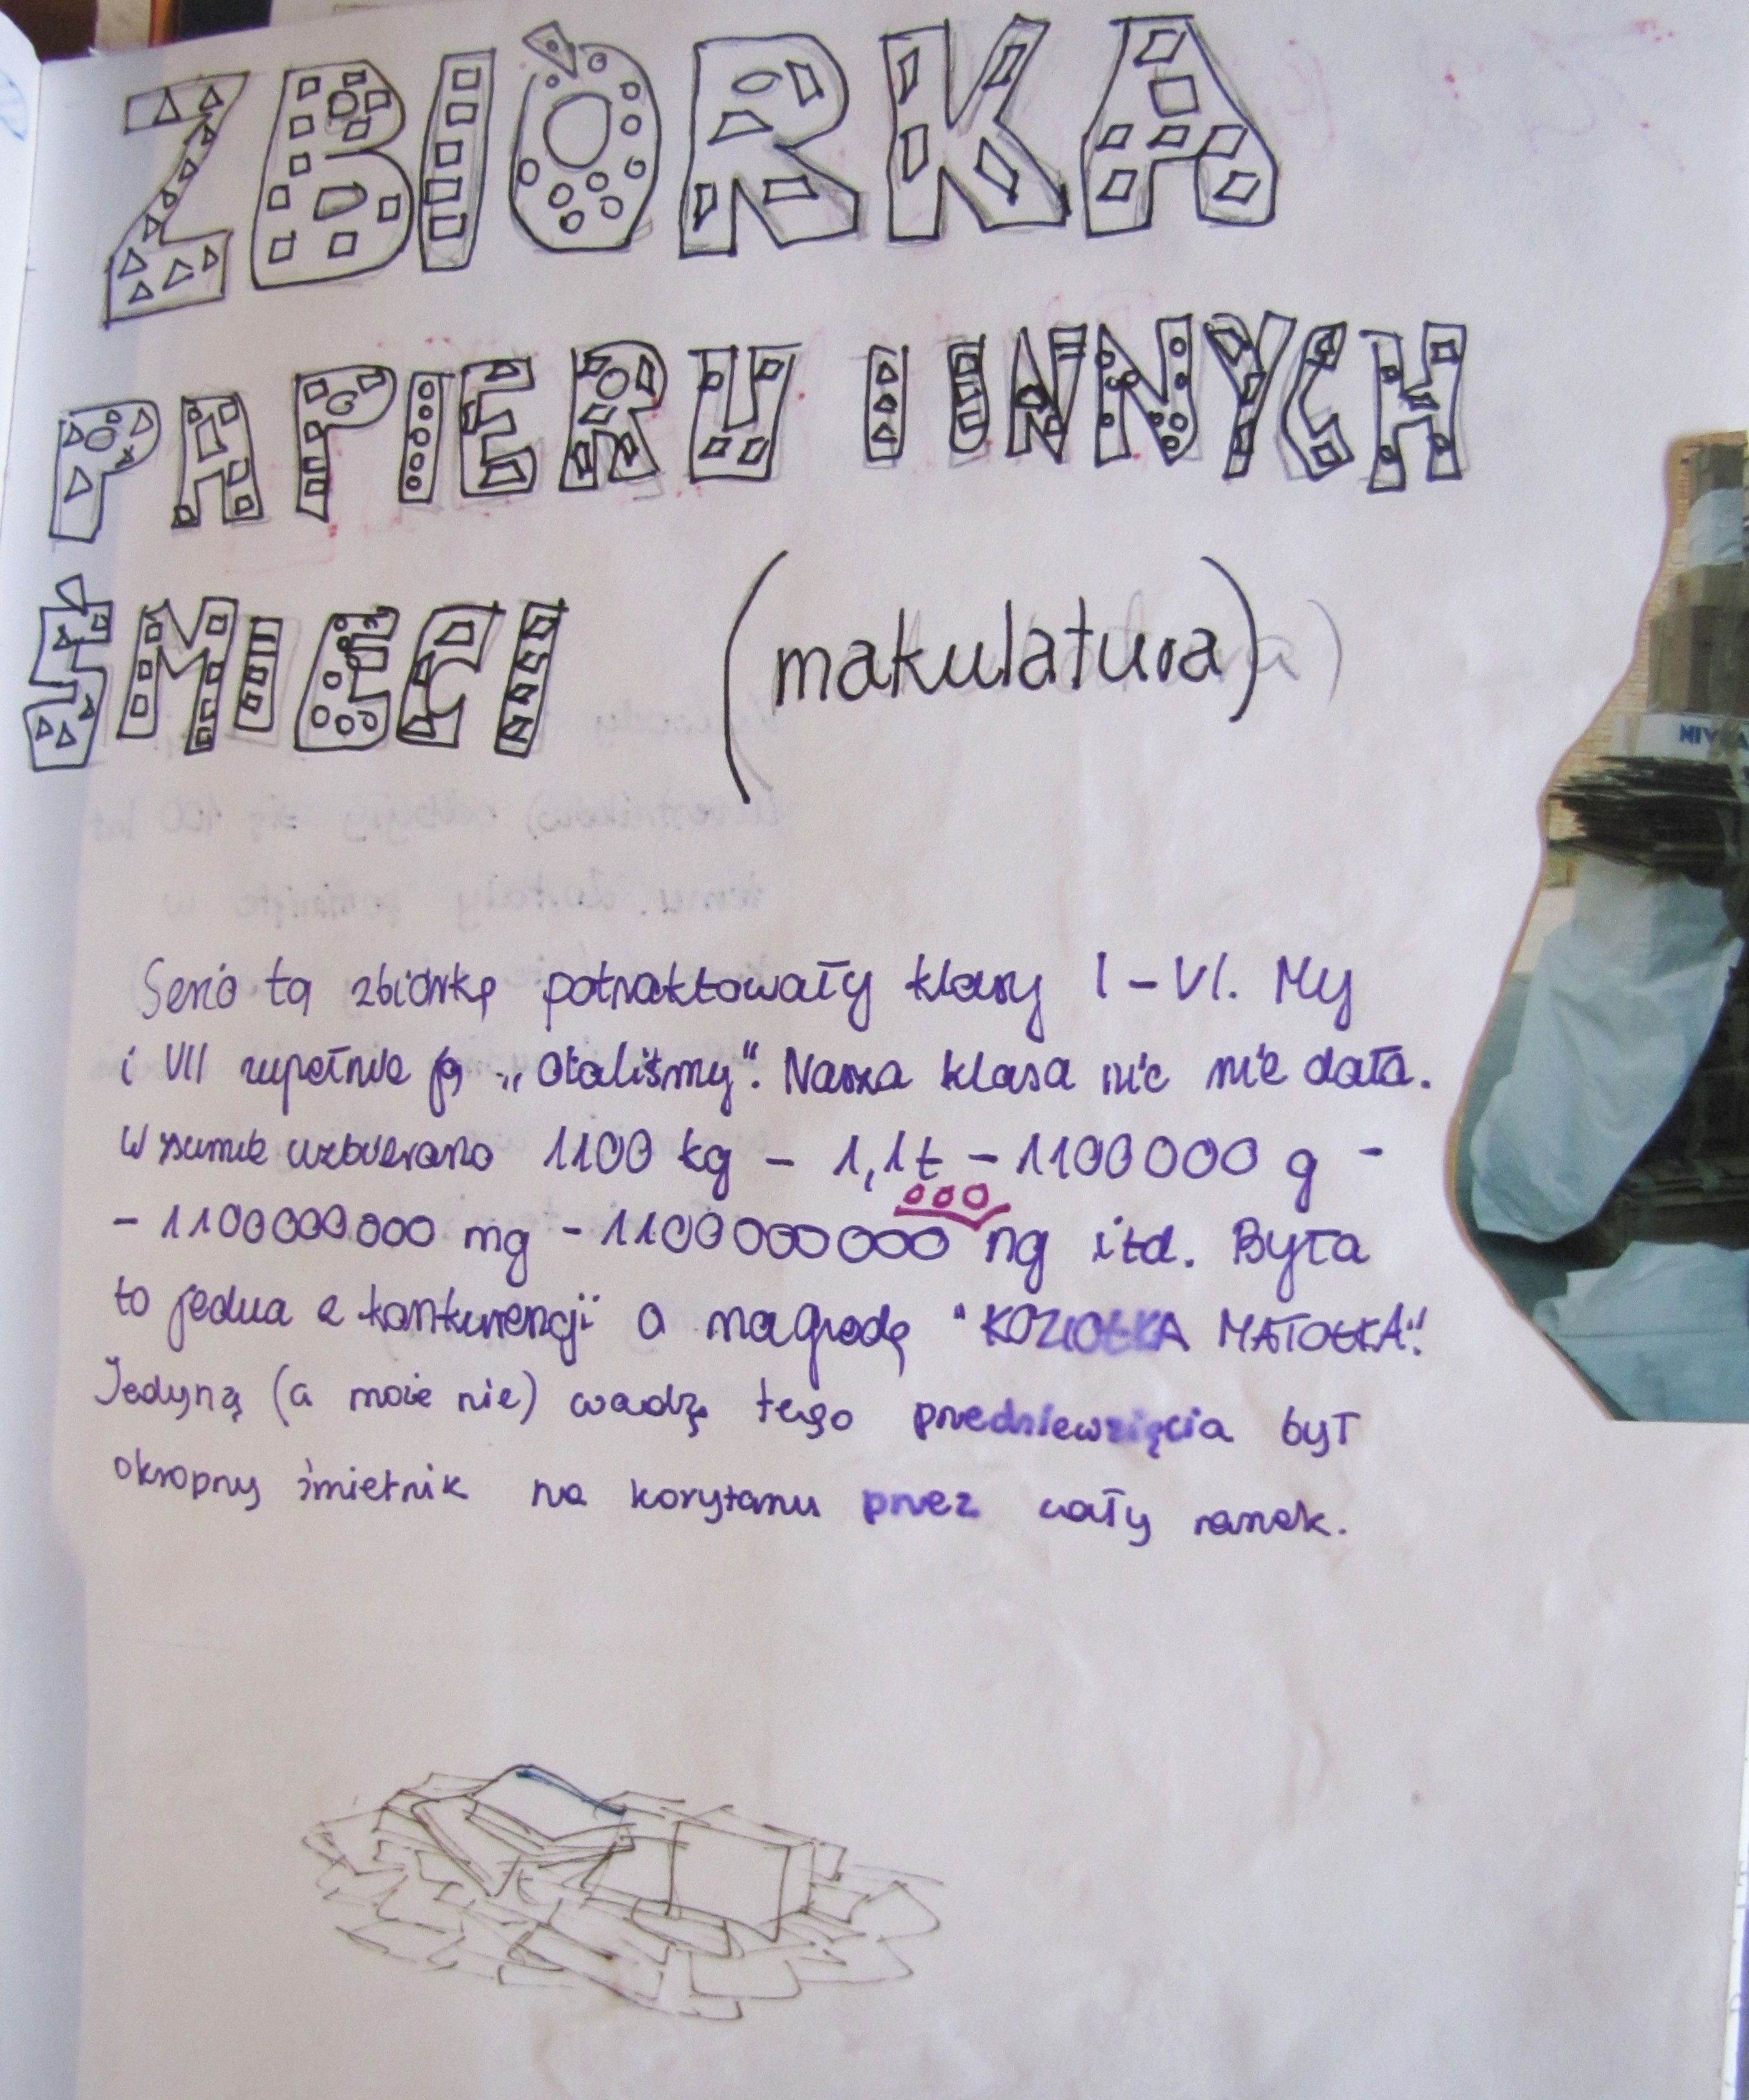 ZBIÓRKA
PAPIERU I INNYCH
ŚMIECI (makulatura)
Serio tą zbiórkę potraktowały klasy I-VI. My
i VII zupełnie ją „olaliśmy". Nasza klasa nic nie dała.
W sumie uzbierano 1100 kg - 1,1t - 1100000 g -
000
- 1100000000 mg - 1100000000 ng itd. Była
to jedna z konkurencji o nagrodę "KOZIOŁKA MATOŁKA".
Jedyną (a może nie) wadą tego przedsiewzięcia był
okropny śmietnik na korytarzu przez cały ranek.
NIVEA